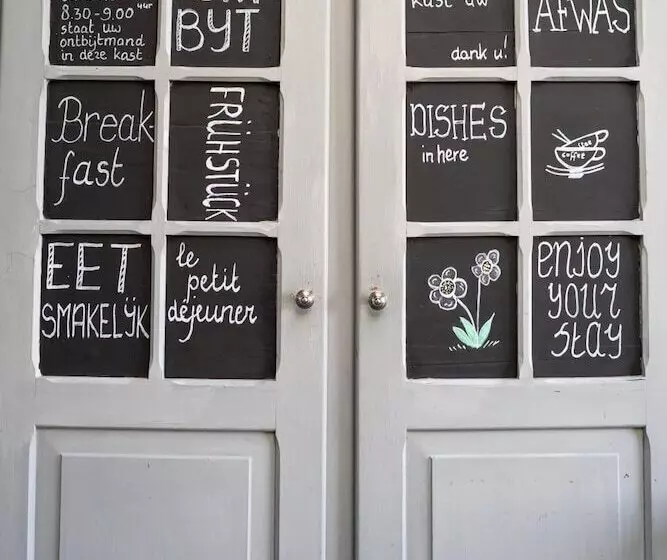 8.30-9.00 uur
staat uw
ontbijtmand
in deze kast
BYT
Break-
fast
FRÜHSTÜCK
EET
SMAKELIJK
le
petit
déjeuner
kast uw
dank u!
AFWAS
DISHES
in here
coffee
enjoy
your
stay